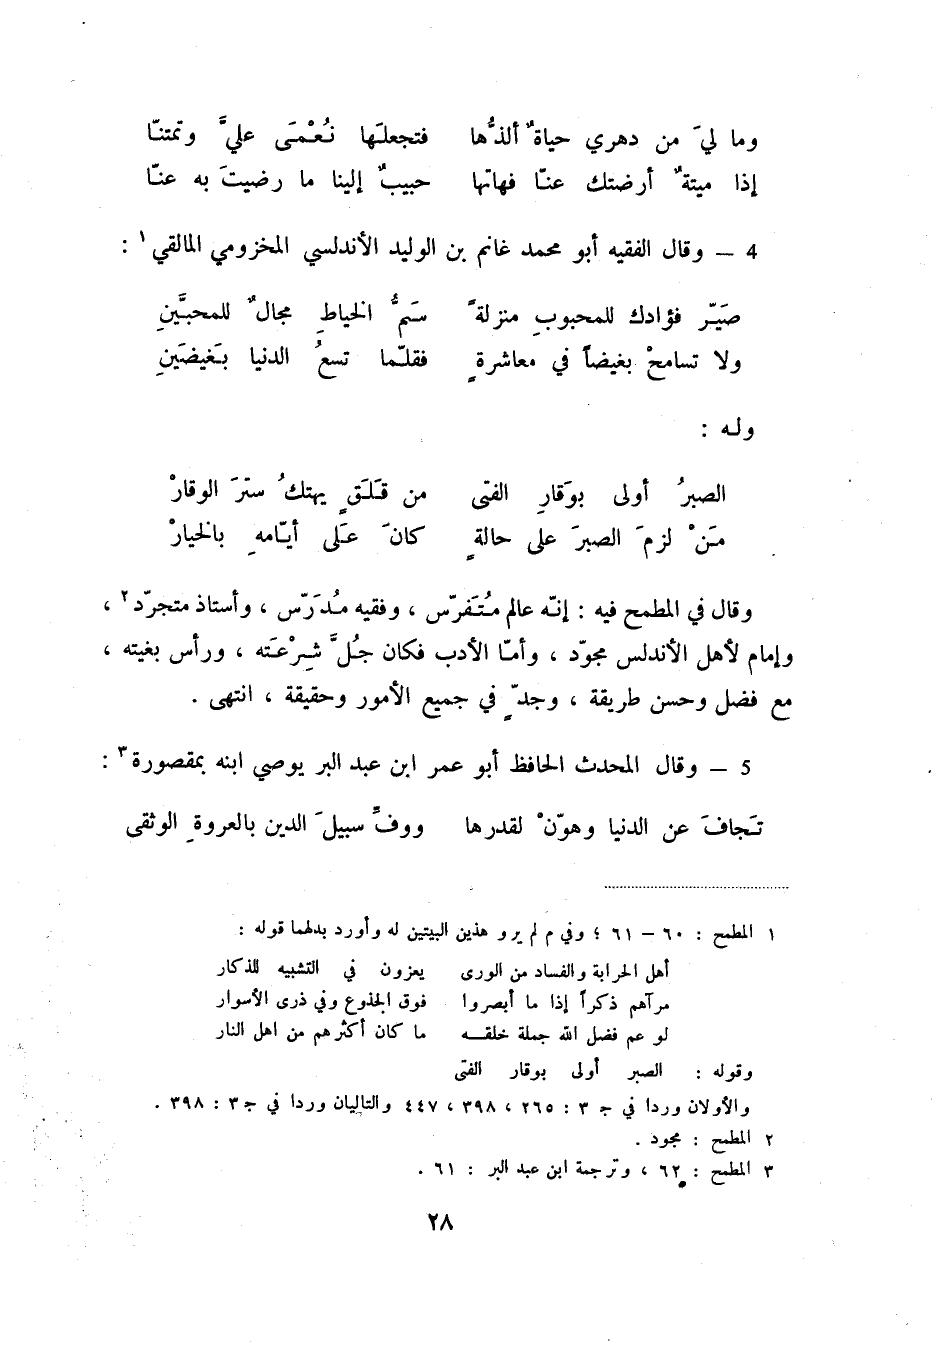 وما ليَ من دهري حياةٌ ألذُّها فتجعلَها نُعْمَى عليَّ وتمتنّا
إذا ميتةٌ أرضتك عنّا فهاتها حبيبٌ إلينا ما رضيتَ به عنّا
4 – وقال الفقيه أبو محمد غانم بن الوليد الأندلسي المخزومي المالقي ١ :
صَيّر فؤادك للمحبوبِ منزلةً سَمُّ الخياطِ مجالٌ للمحبَّينِ
ولا تسامحْ بغيضاً في معاشرةٍ فقلّما تسعُ الدنيا بَغيضَينِ
وله :
الصبرُ أولى بوَقارِ الفتى من قَلَقٍ يهتكُ سترَ الوقارْ
مَنْ لزمَ الصبرَ على حالةٍ كانَ عَلَى أيّامهِ بالخيارْ
وقال في المطمح فيه : إنّه عالم مُتَفرّس ، وفقيه مُدَرّس ، وأستاذ متجرّد ٢ ،
وإمام لأهل الأندلس مجوّد ، وأمّا الأدب فكان جُلَّ شِرْعَته ، ورأس بغيته ،
مع فضل وحسن طريقة ، وجدٍّ في جميع الأمور وحقيقة ، انتهى .
5 – وقال المحدث الحافظ أبو عمر ابن عبد البر يوصي ابنه بمقصورة ٣ :
تَجافَ عن الدنيا وهوّنْ لقدرها ووفِّ سبيلَ الدين بالعروةِ الوثقى
١ المطمح : ٦٠ – ٦١ ؛ وفي م لم يرو هذين البيتين له وأورد بدلهما قوله :
أهل الحرابة والفساد من الورى يعزون في التشبيه للذكار
مرآهم ذكراً إذا ما أبصروا فوق الجذوع وفي ذرى الأسوار
لو عم فضل الله جملة خلقه ما كان أكثرهم من اهل النار
وقوله : الصبر أولى بوقار الفتى
والأولان وردا في ج ٣ : ٢٦٥ ، ٣٩٨ ، ٤٤٧ والتاليان وردا في ج ٣ : ٣٩٨ .
٢ المطمح : مجود .
٣ المطمح : ٦٢ ، وترجمة ابن عبد البر : ٦١ .
٢٨